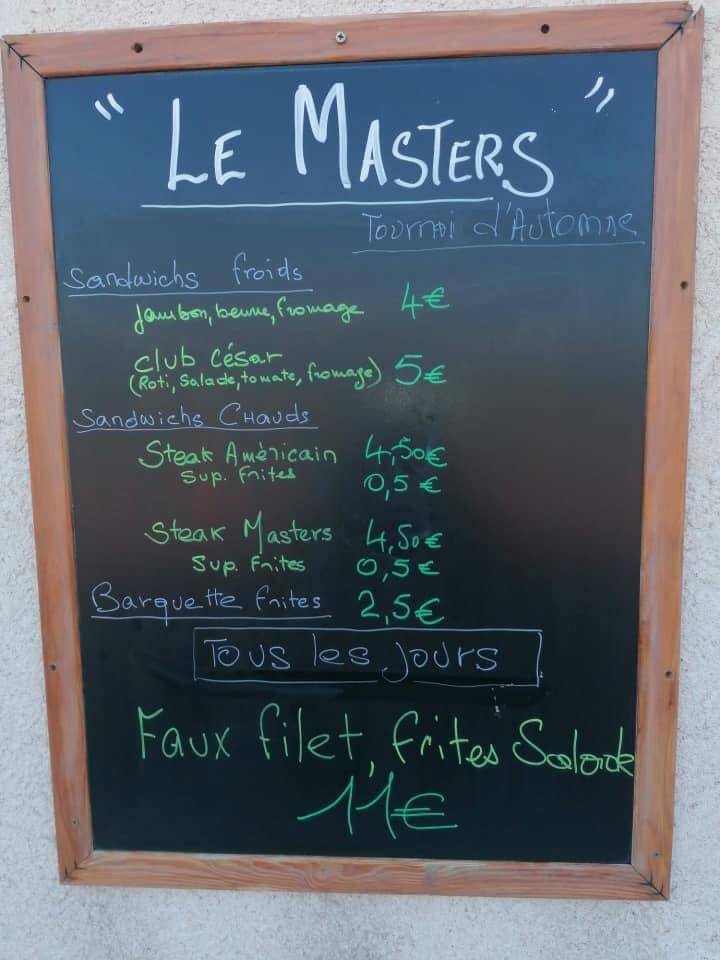 " LE MASTERS "
Tournoi d'Automne
Sandwichs froids
Jambon, beurre, fromage 4€
Club César
(Roti, Salade, tomate, fromage) 5€
Sandwichs Chauds
Steak Américain 4,50€
Sup. Frites 0,5€
Steak Masters 4,50€
Sup. Frites 0,5€
Barquette frites 2,5€
Tous les jours
Faux filet, frites Salade
11€